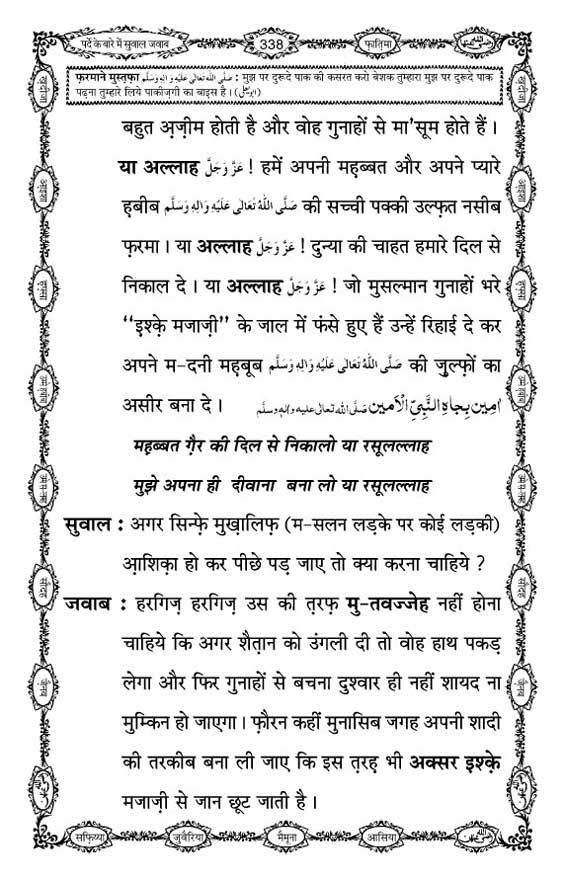 पर्दे के बारे में सुवाल जवाब
338
फ़ातिमा
फ़रमाने मुस्तफ़ा صَلَّى اللهُ تَعَالٰى عَلَيْهِ وَاٰلِهٖ وَسَلَّم : मुझ पर दुरूदे पाक की कसरत करो बेशक तुम्हारा मुझ पर दुरूदे पाक
पढ़ना तुम्हारे लिये पाकीज़गी का बाइस है। (ابو يعلى)
बहुत अ़ज़ीम होती है और वोह गुनाहों से मा'सूम होते हैं।
या अल्लाह عَزَّ وَجَلَّ ! हमें अपनी महब्बत और अपने प्यारे
हबीब صَلَّى اللهُ تَعَالٰى عَلَيْهِ وَاٰلِهٖ وَسَلَّم की सच्ची पक्की उल्फ़त नसीब
फ़रमा। या अल्लाह عَزَّ وَجَلَّ ! दुन्या की चाहत हमारे दिल से
निकाल दे। या अल्लाह عَزَّ وَجَلَّ ! जो मुसल्मान गुनाहों भरे
“इश्क़े मजाज़ी” के जाल में फंसे हुए हैं उन्हें रिहाई दे कर
अपने म-दनी महबूब صَلَّى اللهُ تَعَالٰى عَلَيْهِ وَاٰلِهٖ وَسَلَّم की ज़ुल्फ़ों का
असीर बना दे। اٰمين بِجاهِ النَّبِيِّ الْاَمين صَلَّى الله تعالى عليه واٰله وسلَّم
महब्बत ग़ैर की दिल से निकालो या रसूलल्लाह
मुझे अपना ही दीवाना बना लो या रसूलल्लाह
सुवाल : अगर सिन्फ़े मुख़ालिफ़ (म-सलन लड़के पर कोई लड़की)
आ़शिक़ा हो कर पीछे पड़ जाए तो क्या करना चाहिये ?
जवाब : हरगिज़ हरगिज़ उस की त़रफ़ मु-तवज्जेह नहीं होना
चाहिये कि अगर शैत़ान को उंगली दी तो वोह हाथ पकड़
लेगा और फिर गुनाहों से बचना दुश्वार ही नहीं शायद ना
मुम्किन हो जाएगा। फ़ौरन कहीं मुनासिब जगह अपनी शादी
की तरकीब बना ली जाए कि इस त़रह़ भी अक्सर इश्क़े
मजाज़ी से जान छूट जाती है।
सफ़िय्या
जुवैरिया
मैमूना
आसिया